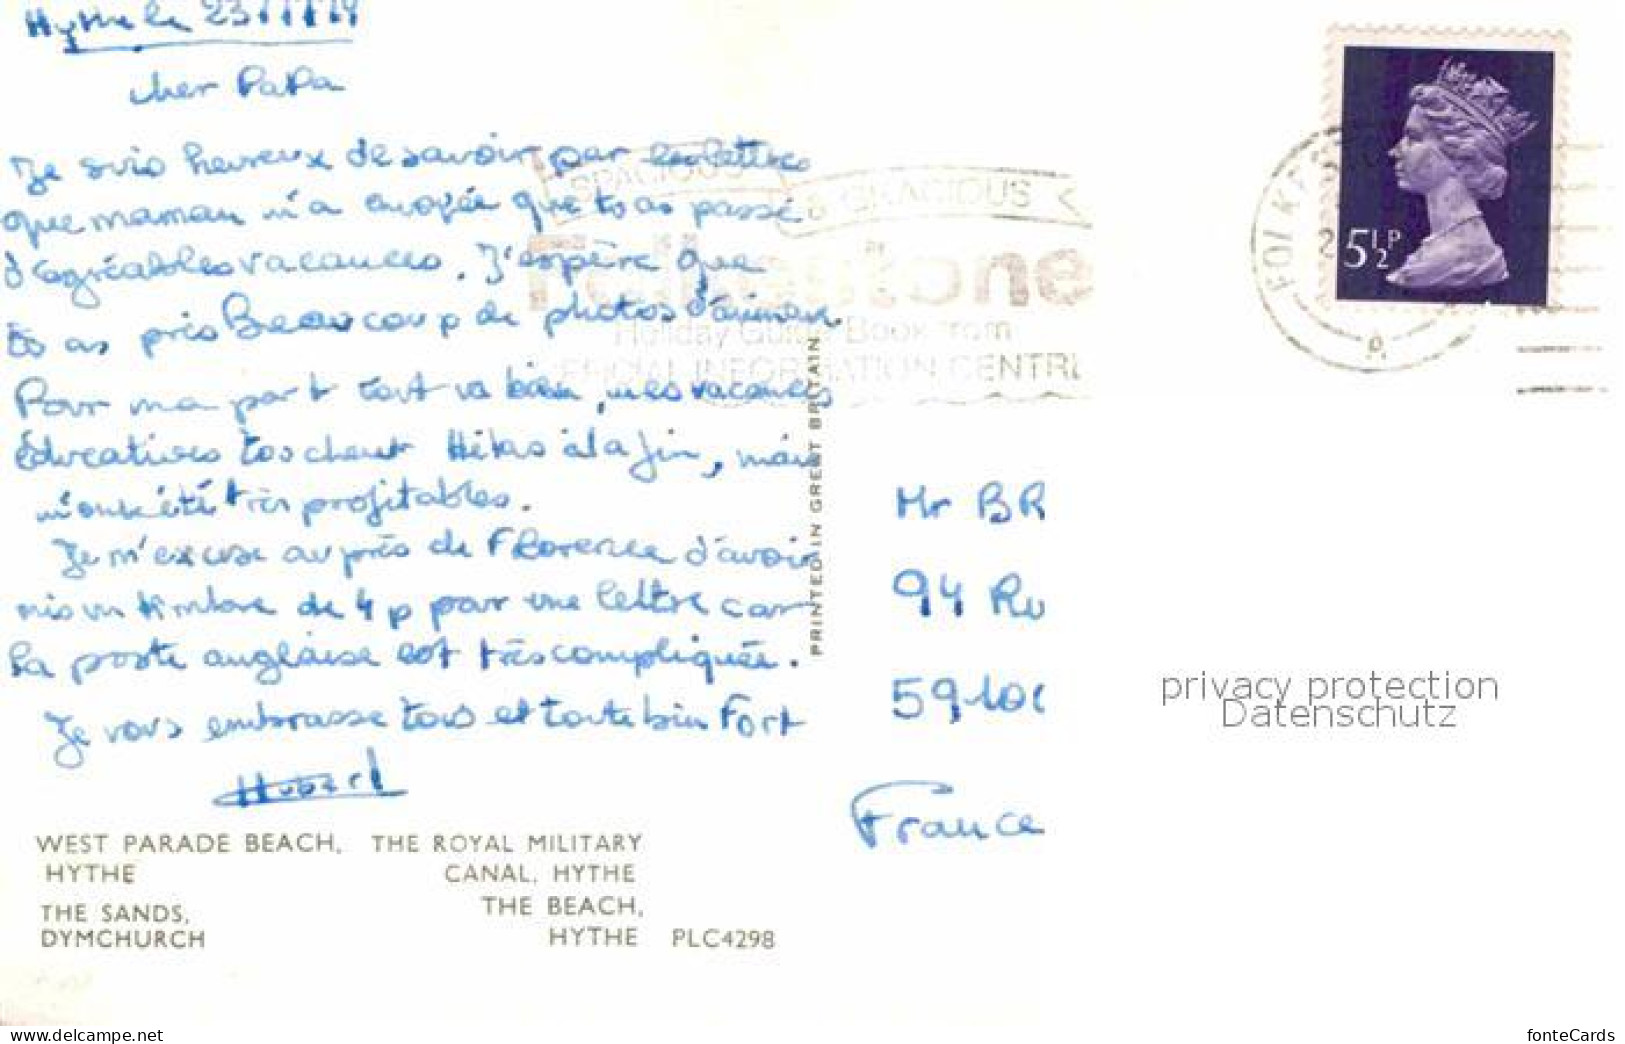 Hythe le 23
cher PaPa
Je suis heureux de savoir par les lettres
que maman m'a envoyée que tu as passé
d'agréables vacances. J'espère que
tu as pris Beaucoup de photos d'animaux.
Pour ma part tout va bien, mes vacances
éducatives touchent Hélas à la fin, mais
m'ont été très profitables.
Je m'excuse auprès de Florence d'avoir
mis un timbre de 4 p pour une lettre car
la poste anglaise est très compliquée.
Je vous embrasse tous et toute bien Fort
Hubert
WEST PARADE BEACH, HYTHE
THE ROYAL MILITARY CANAL, HYTHE
THE SANDS, DYMCHURCH
THE BEACH, HYTHE
PLC4298
PRINTED IN GREAT BRITAIN
SPACIOUS & GRACIOUS
Folkestone
Holiday Guide Book from
INFORMATION CENTRE
5½P
FOLKES
Mr BR
94 Ru
59100
France
privacy protection
Datenschutz
www.delcampe.net
fonteCards